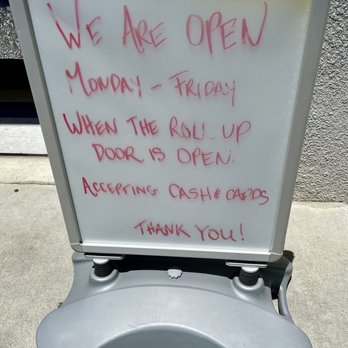 WE ARE OPEN
MONDAY - FRIDAY
WHEN THE ROLL UP
DOOR IS OPEN.
ACCEPTING CASH & CARDS
THANK YOU!